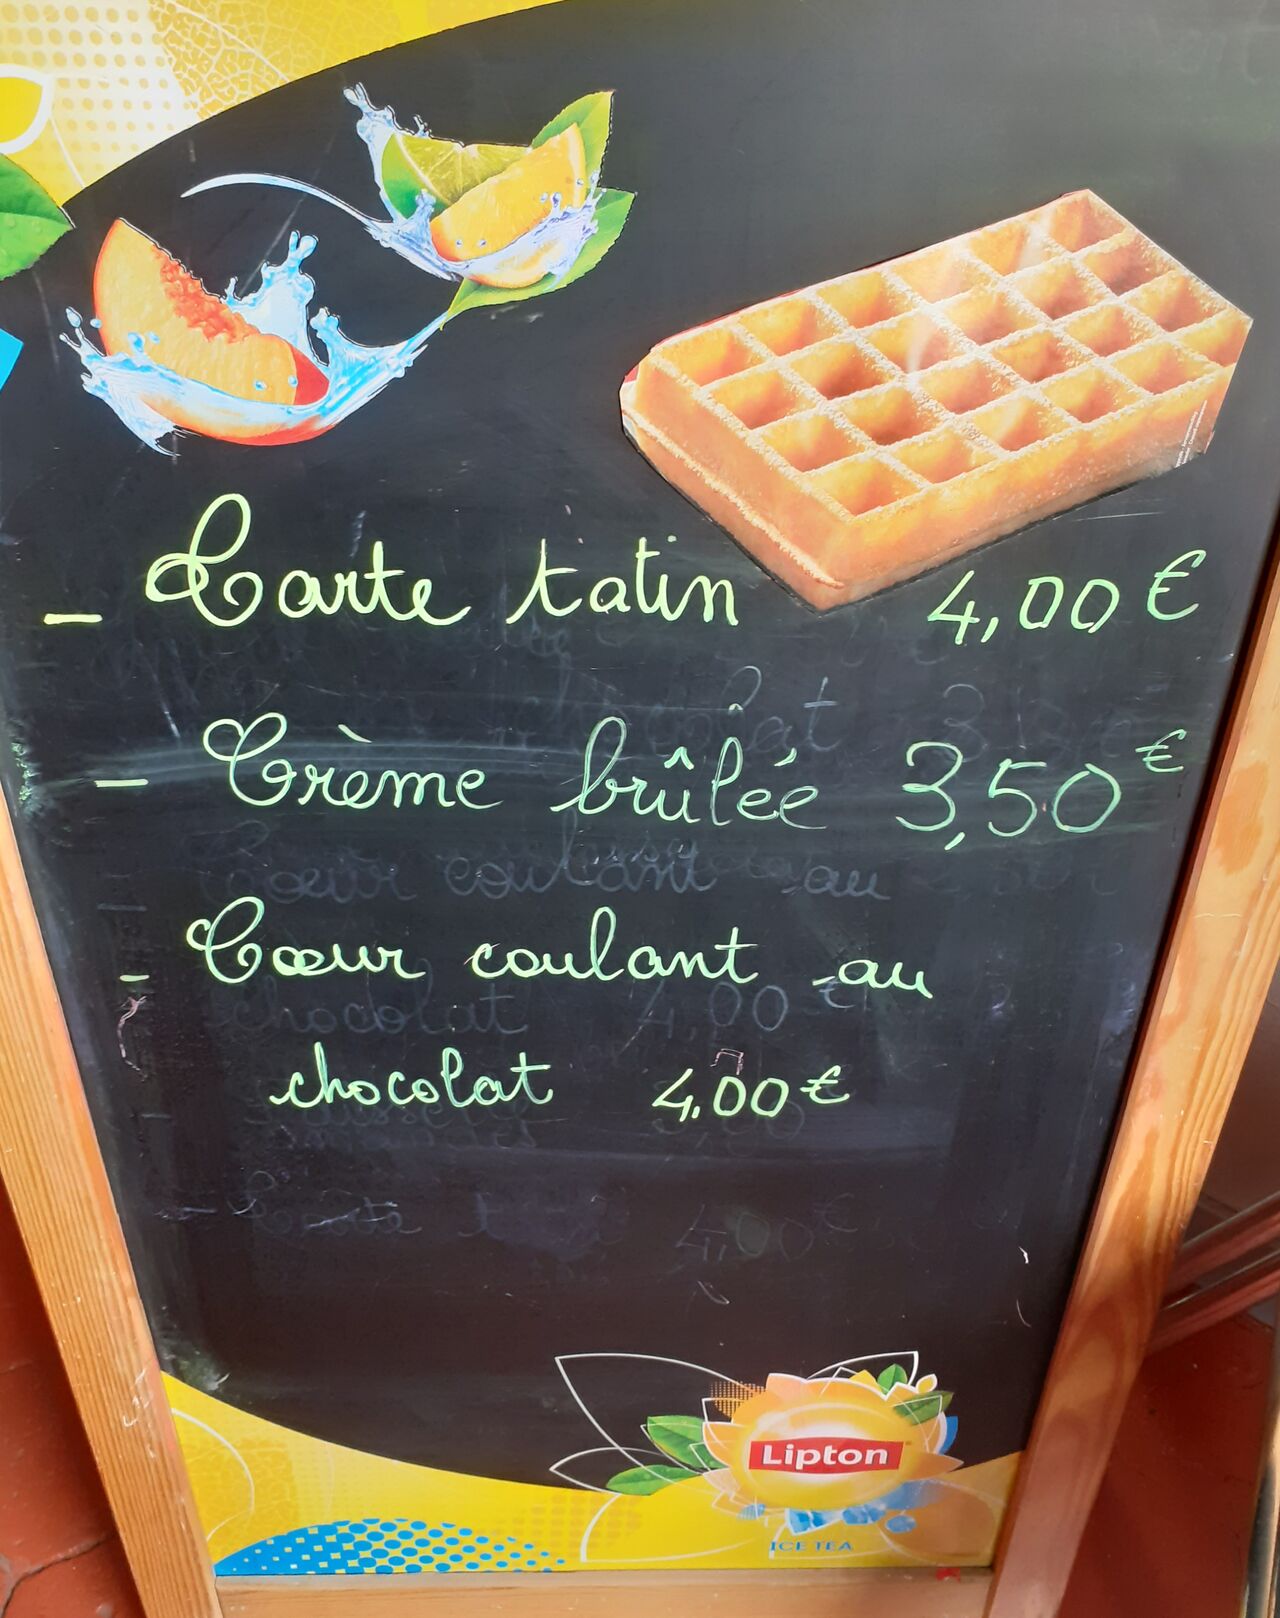 - Tarte tatin 4,00 €
- Crème brûlée 3,50 €
- Cœur coulant au
chocolat 4,00 €
Lipton
ICE TEA